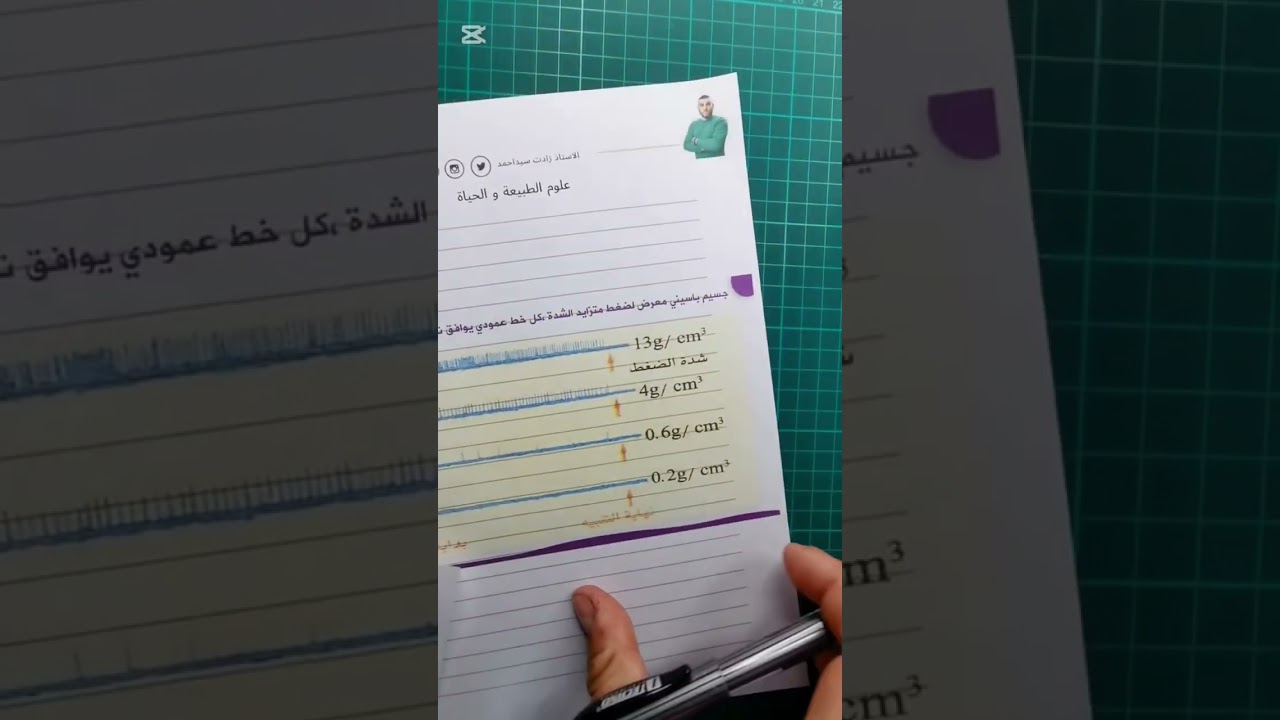 الاستاذ زادت سيداحمد
علوم الطبيعة و الحياة
جسيم باسيني معرض لضغط متزايد الشدة ،كل خط عمودي يوافق
13g/ cm³
شدة الضغط
4g/ cm³
0.6g/ cm³
0.2g/ cm³
نهاية التنبيه